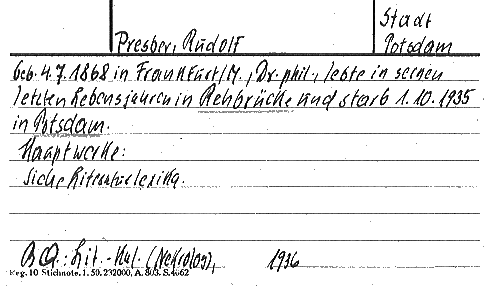 Stadt
Presber, Rudolf Potsdam
Geb. 4.7.1868 in Frankfurt/M., Dr. phil., lebte in seinen
letzten Lebensjahren in Rehbrücke und starb 1.10.1935
in Potsdam.
Hauptwerke:
Siehe Literaturlexika.
BQ.: Lit.-Kal. (Nekrolog), 1936
Erg. 10 Stichnote. 1. 50. 232000, A. 803. S. 4662